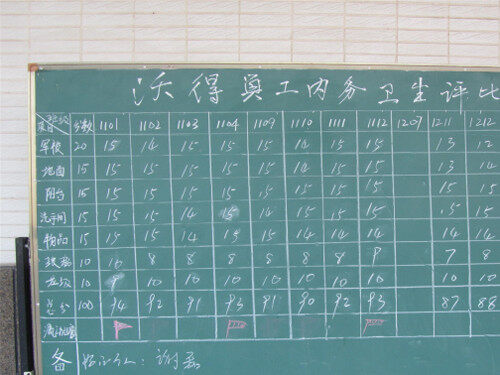 沃得员工内务卫生评比
项目 分数 1101 1102 1103 1104 1109 1110 1111 1112 1207 1211 1212
20 15 14 15 15 15 14 15 15 13 12
地面 15 15 15 15 15 15 15 15 15 13 14
阳台 15 15 15 15 15 15 15 15 15 15 15
洗手间 15 15 15 14 15 14 15 15 15 15 15
物品 15 15 15 14 15 15 14 14 14 14 14
10 10 8 8 8 8 8 8 9 7 8
10 9 10 10 10 10 10 10 10 10 10
总分 100 94 92 91 93 91 90 92 93 87 88
流动红旗
备 评比人: